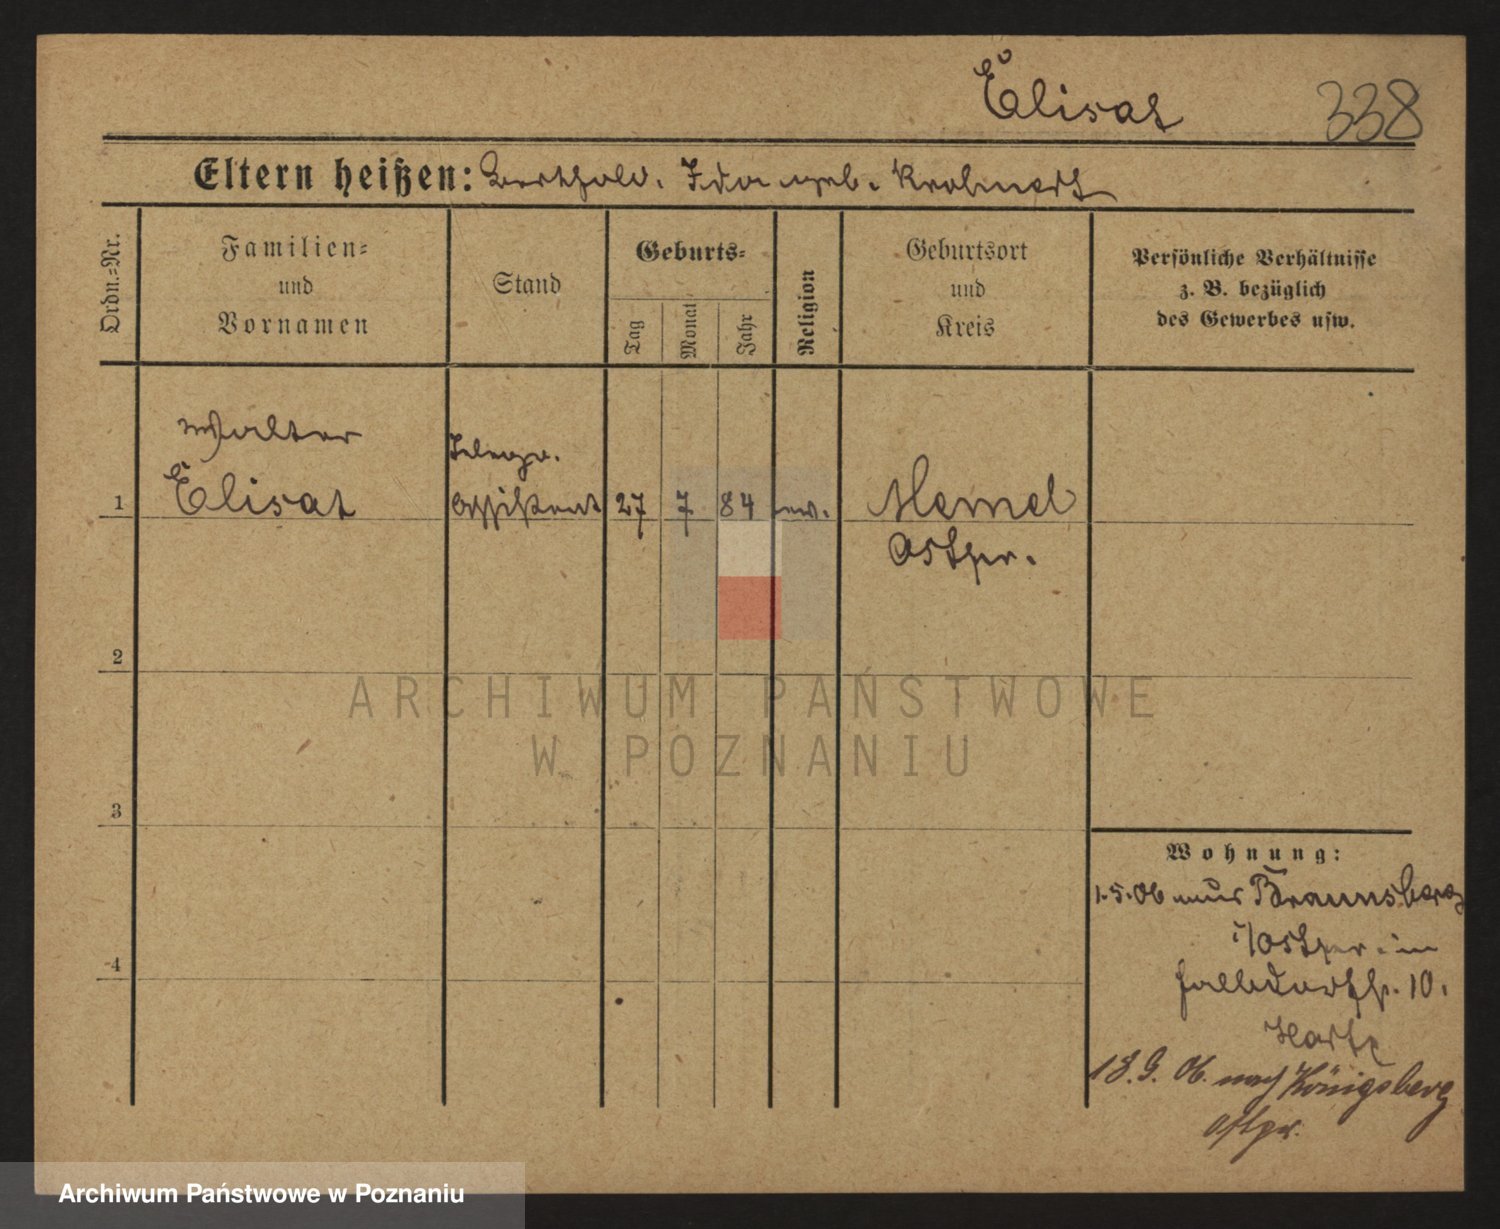 Elisat 338
Eltern heißen: Berthold. Ida geb.
Ordn.=Nr.
Familien=
und
Vornamen
Stand
Geburts=
Tag Monat Jahr
Religion
Geburtsort
und
Kreis
Persönliche Verhältnisse
z. B. bezüglich
des Gewerbes usw.
Walter
Telegr.
1 Elisat Assistent 27 7 84 ev. Memel
Ostpr.
2
ARCHIWUM PAŃSTWOWE
W POZNANIU
3
Wohnung:
1.5.06 aus Braunsberg
i/Ostpr. in
10.
4
18.9.06. nach Königsberg
Ostpr.
Archiwum Państwowe w Poznaniu